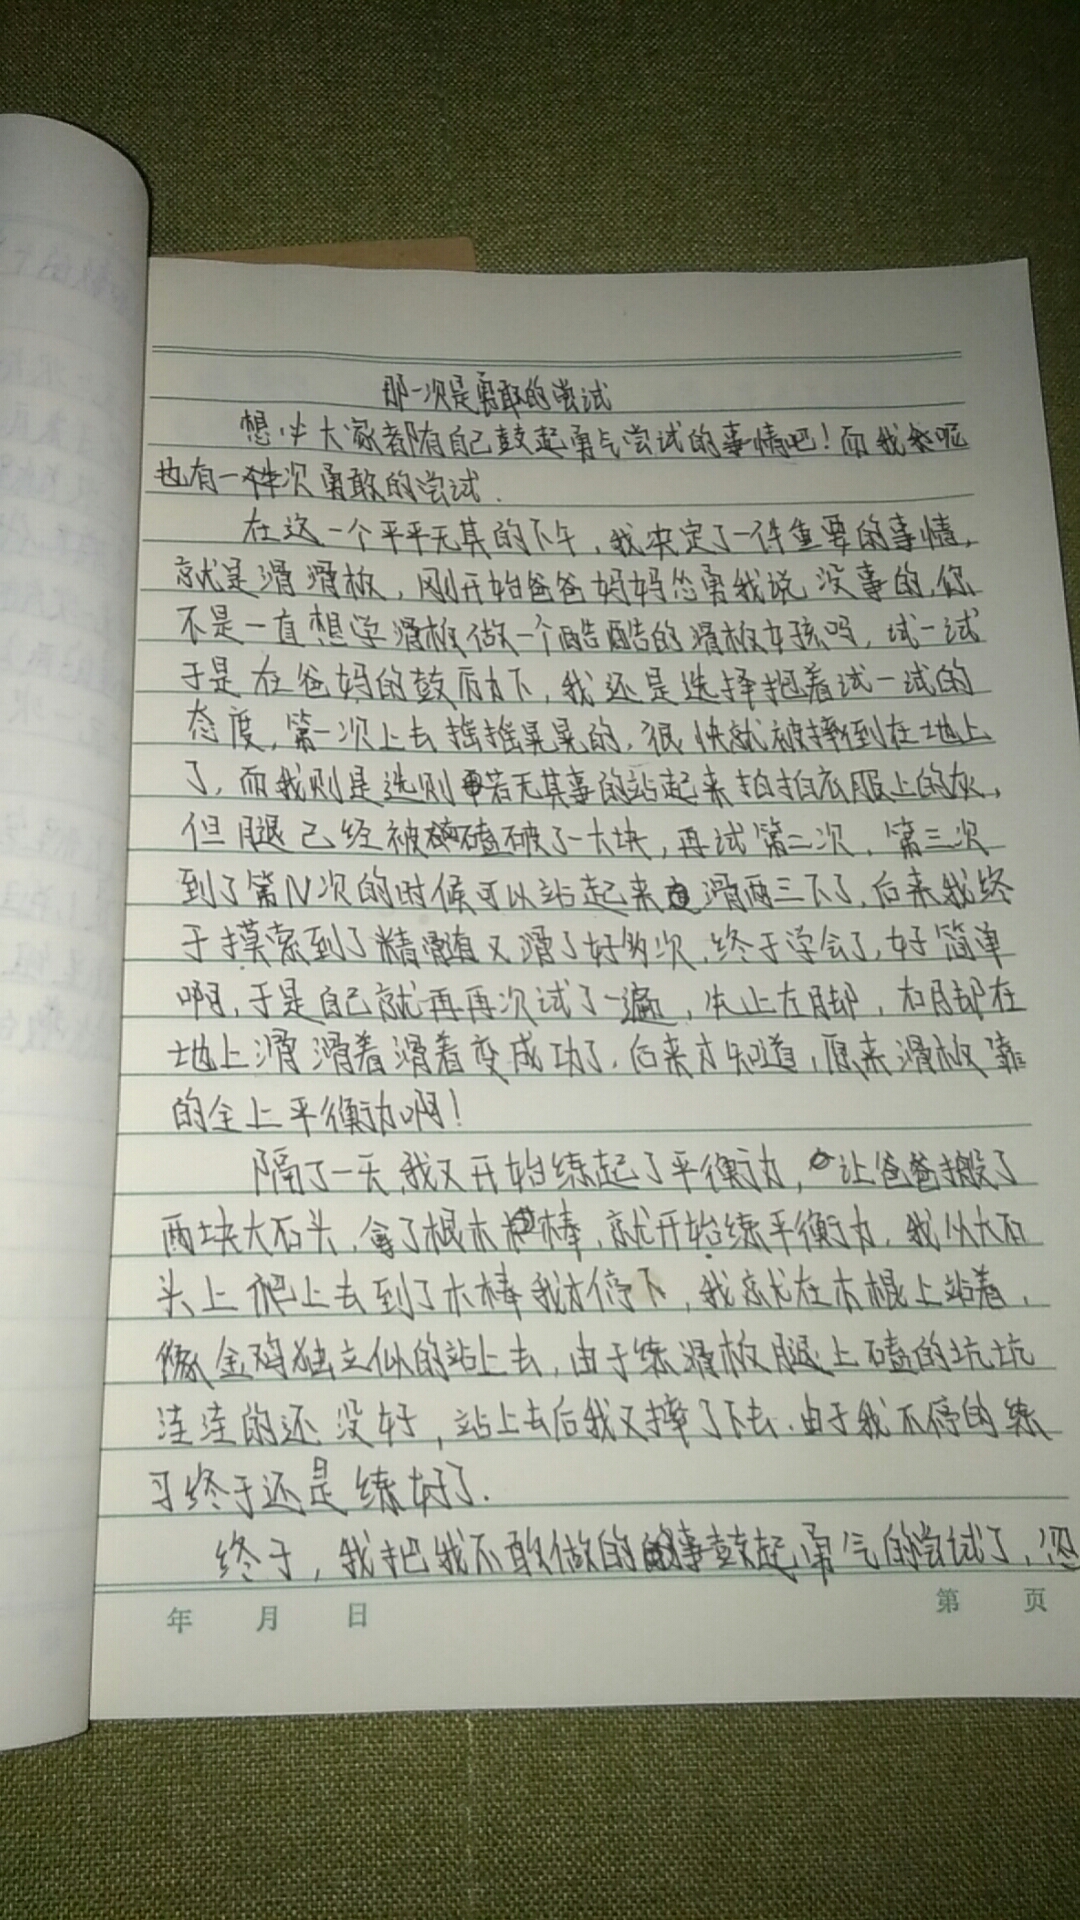 那一次是勇敢的尝试
想必大家都有自己鼓起勇气尝试的事情吧！而我呢
也有一次勇敢的尝试.
在这一个平平无其的下午，我决定了一件重要的事情，
就是滑滑板，刚开始爸爸妈妈怂勇我说没事的，你
不是一直想学滑板做一个酷酷的滑板女孩吗，试一试
于是在爸妈的鼓厉力下，我还是选择抱着试一试的
态度，第一次上去摇摇晃晃的，很快就被摔倒在地上
了，而我则是选则若无其事的站起来拍拍衣服上的灰，
但腿已经被磕破了一大块，再试第二次，第三次
到了第N次的时候可以站起来滑两三下了，后来我终
于摸索到了精髓又滑了好多次，终于学会了，好简单
啊，于是自己就再再次试了一遍，先上左脚，右脚在
地上滑滑着滑着变成功了，后来才知道，原来滑板靠
的全上平衡力啊！
隔了一天，我又开始练起了平衡力，让爸爸搬了
两块大石头，拿了根木棒，就开始练平衡力，我从大石
头上爬上去到了木棒我才停下，我就在木棍上站着，
像金鸡独立似的站上去，由于练滑板腿上磕的坑坑
洼洼的还没好，站上去后我又摔了下去.由于我不停的练
习终于还是练好了.
终于，我把我不敢做的事鼓起勇气的尝试了，
年 月 日 第 页